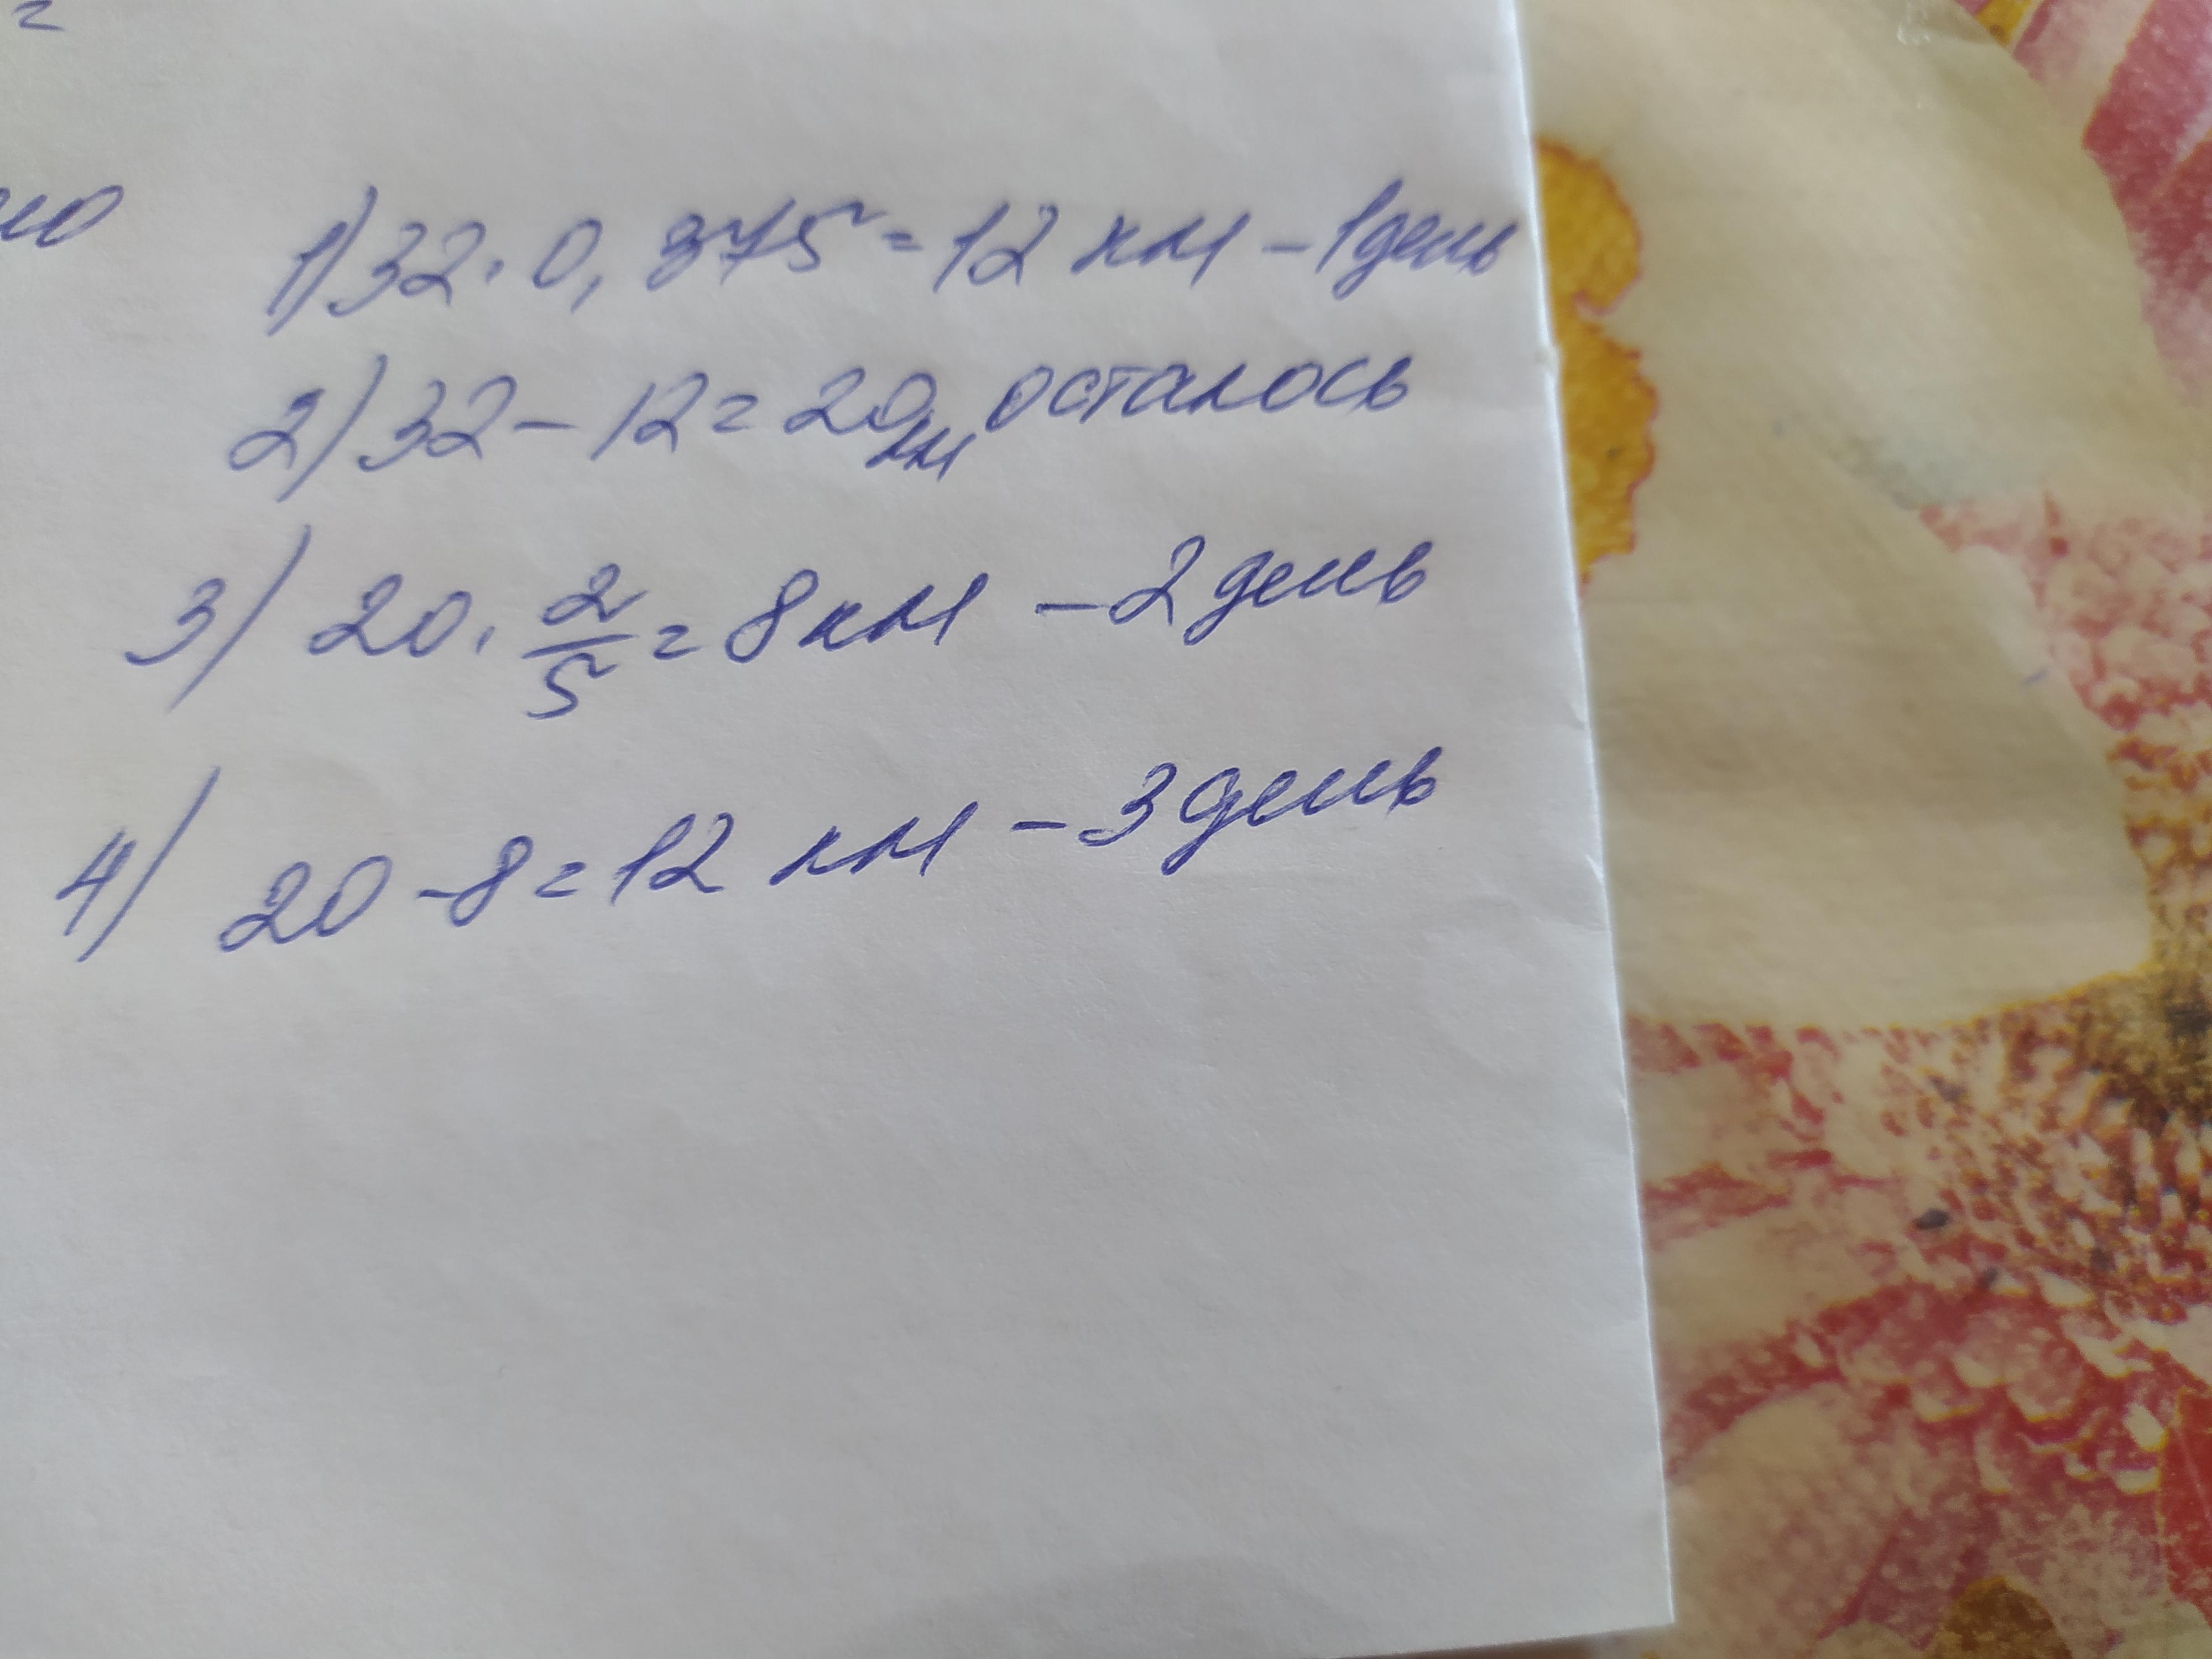 1) 32 · 0,375 = 12 км - 1 день
2) 32 - 12 = 20 км осталось
3) 20 · 2/5 = 8 км - 2 день
4) 20 - 8 = 12 км - 3 день